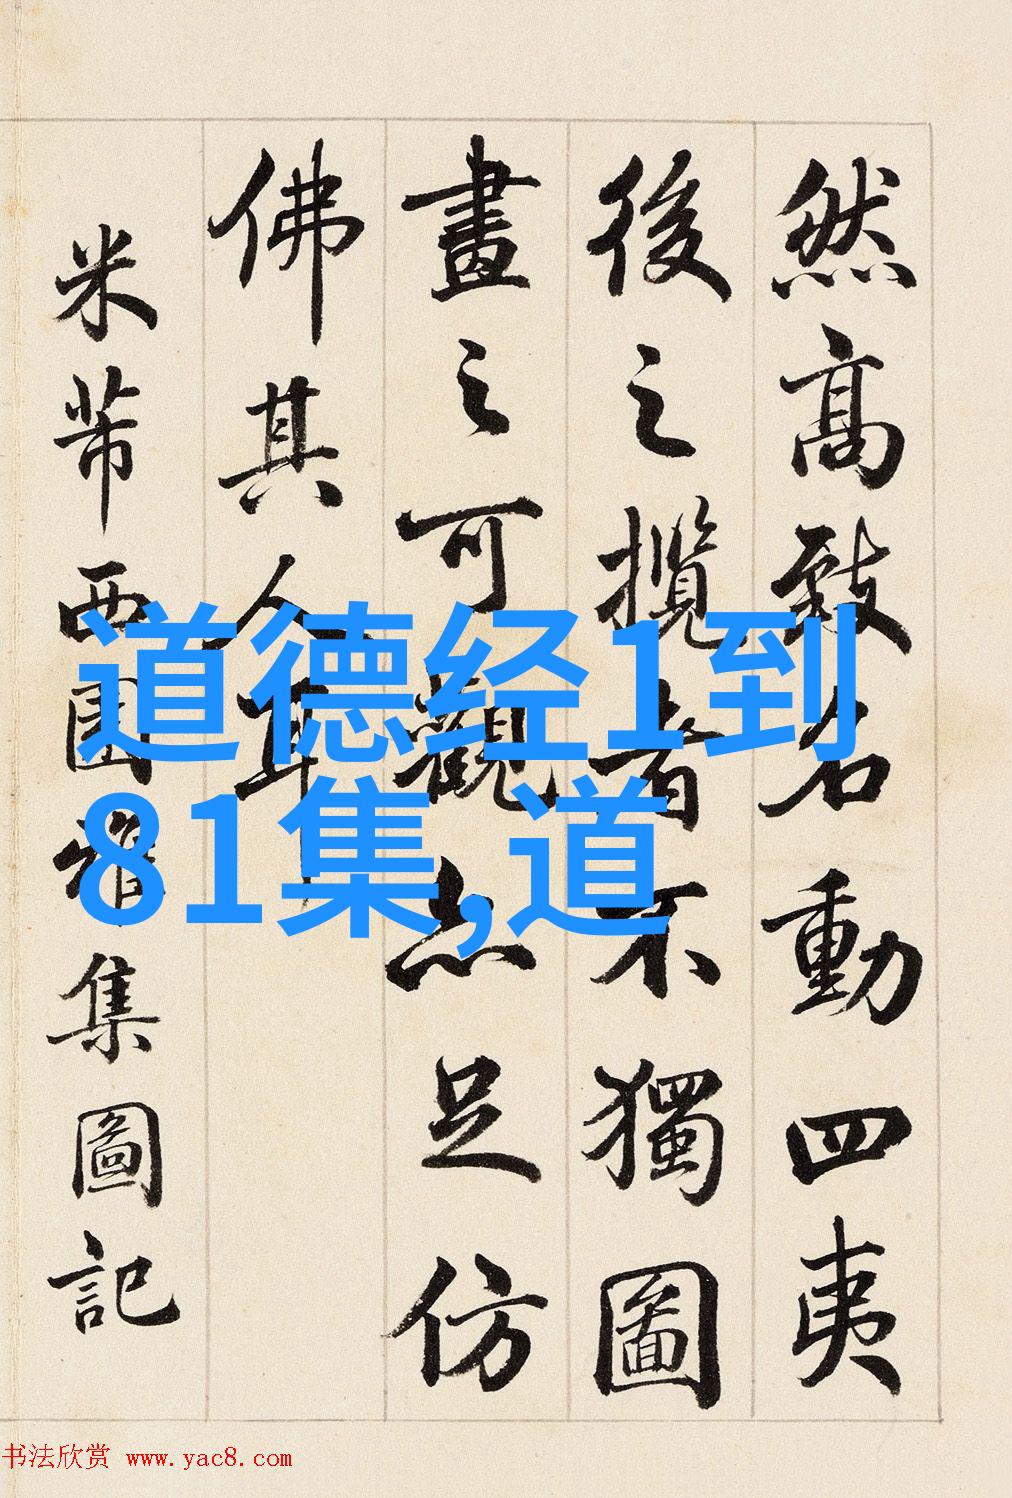 然高致名動四夷
後之攬者不獨圖
畫之可觀亦足仿
佛其人耳
米芾西園雅集圖記
道德经1到
81集,道
书法欣赏 www.yac8.com